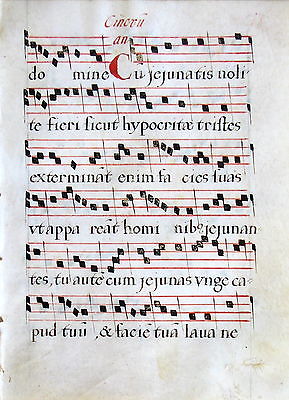 Cinerũ
an
do mine Cũ jejunatis noli
te fieri sicut hypocritæ tristes
exterminãt enim fa cies suas
vt appa reãt homi nibꝰ jejunan
tes, tu autẽ cum jejunas vnge ca-
pud tuũ, & faciẽ tuã laua ne